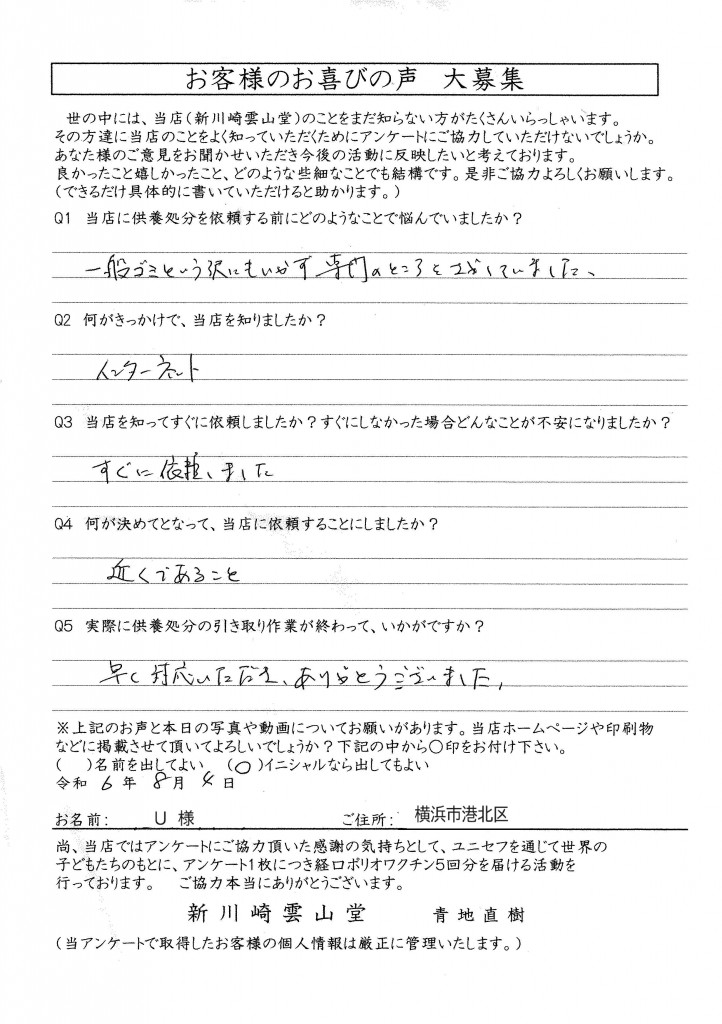 お客様のお喜びの声　大募集
世の中には、当店(新川崎雲山堂)のことをまだ知らない方がたくさんいらっしゃいます。
その方達に当店のことをよく知っていただくためにアンケートにご協力していただけないでしょうか。
あなた様のご意見をお聞かせいただき今後の活動に反映したいと考えております。
良かったこと嬉しかったこと、どのような些細なことでも結構です。是非ご協力よろしくお願いします。
(できるだけ具体的に書いていただけると助かります。)
Q1　当店に供養処分を依頼する前にどのようなことで悩んでいましたか？
一般ゴミという訳にもいかず専門のところをさがしていました、
Q2　何がきっかけで、当店を知りましたか？
インターネット
Q3　当店を知ってすぐに依頼しましたか？すぐにしなかった場合どんなことが不安になりましたか？
すぐに依頼しました
Q4　何が決めてとなって、当店に依頼することにしましたか？
近くであること
Q5　実際に供養処分の引き取り作業が終わって、いかがですか？
早く対応いただき、ありがとうございました,
※上記のお声と本日の写真や動画についてお願いがあります。当店ホームページや印刷物
などに掲載させて頂いてよろしいでしょうか？下記の中から○印をお付け下さい。
(　)名前を出してよい　(○)イニシャルなら出してもよい
令和　6　年　8　月　4　日
お名前：　U 様　ご住所：　横浜市港北区
尚、当店ではアンケートにご協力頂いた感謝の気持ちとして、ユニセフを通じて世界の
子どもたちのもとに、アンケート1枚につき経口ポリオワクチン5回分を届ける活動を
行っております。　ご協力本当にありがとうございます。
新川崎雲山堂　青地直樹
(当アンケートで取得したお客様の個人情報は厳正に管理いたします。)